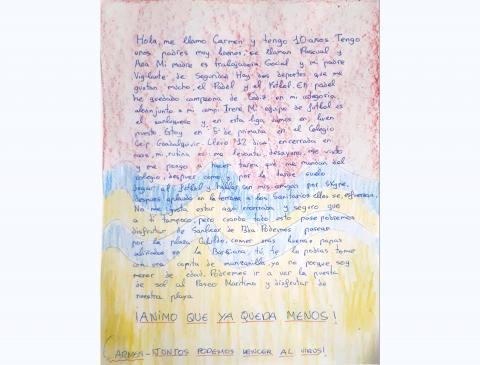 Hola, me llamo Carmen y tengo 10 años. Tengo
unos padres muy buenos, se llaman Pascual y
Ana. Mi madre es trabajadora Social y mi padre
Vigilante de Seguridad. Hay dos deportes que me
gustan mucho, el Pádel y el Fútbol. En pádel
he quedado campeona de Cádiz, en mi categoría,
junto a mi compi Irene. Mi equipo de fútbol es
el sanluqueño y, en esta liga, vamos en buen
puesto. Estoy en 5º de primaria, en el Colegio
Ceip Guadalquivir. Llevo 12 días encerrada en
casa, mi rutina es: me levanto, desayuno, me visto
y me pongo a hacer tarea que me mandan del
colegio, después como y por la tarde suelo
jugar al fútbol y hablar con mis amigas por Skype,
después aplaudo en la terraza a los Sanitarios ellos se esfuerzan.
No me gusta estar aquí encerrada y seguro que
a ti tampoco, pero cuando todo esto pase podremos
disfrutar de Sanlúcar de Bda. Podemos pasear
por la plaza Cabildo, comer unas buenas papas
aliñadas en la Barbiana, tú te la podías tomar
con una copita de manzanilla, yo no porque soy
menor de edad. Podremos ir a ver la puesta
de sol al Paseo Marítimo y disfrutar de
nuestra playa.
¡ANIMO QUE YA QUEDA MENOS!
CARMEN-¡JUNTOS PODEMOS VENCER AL VIRUS!